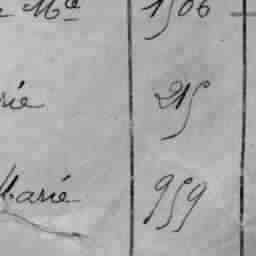 Ma 1506
rie 215
Marie 959